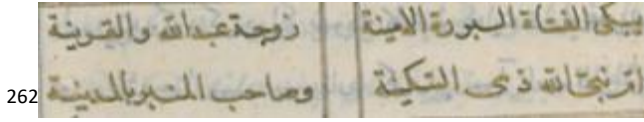 يبكى الفتاة الامينة زوجة عبدالله والقرينة
ام نبى الله ذى السكينة وصاحب المنبر بالمدينة
262